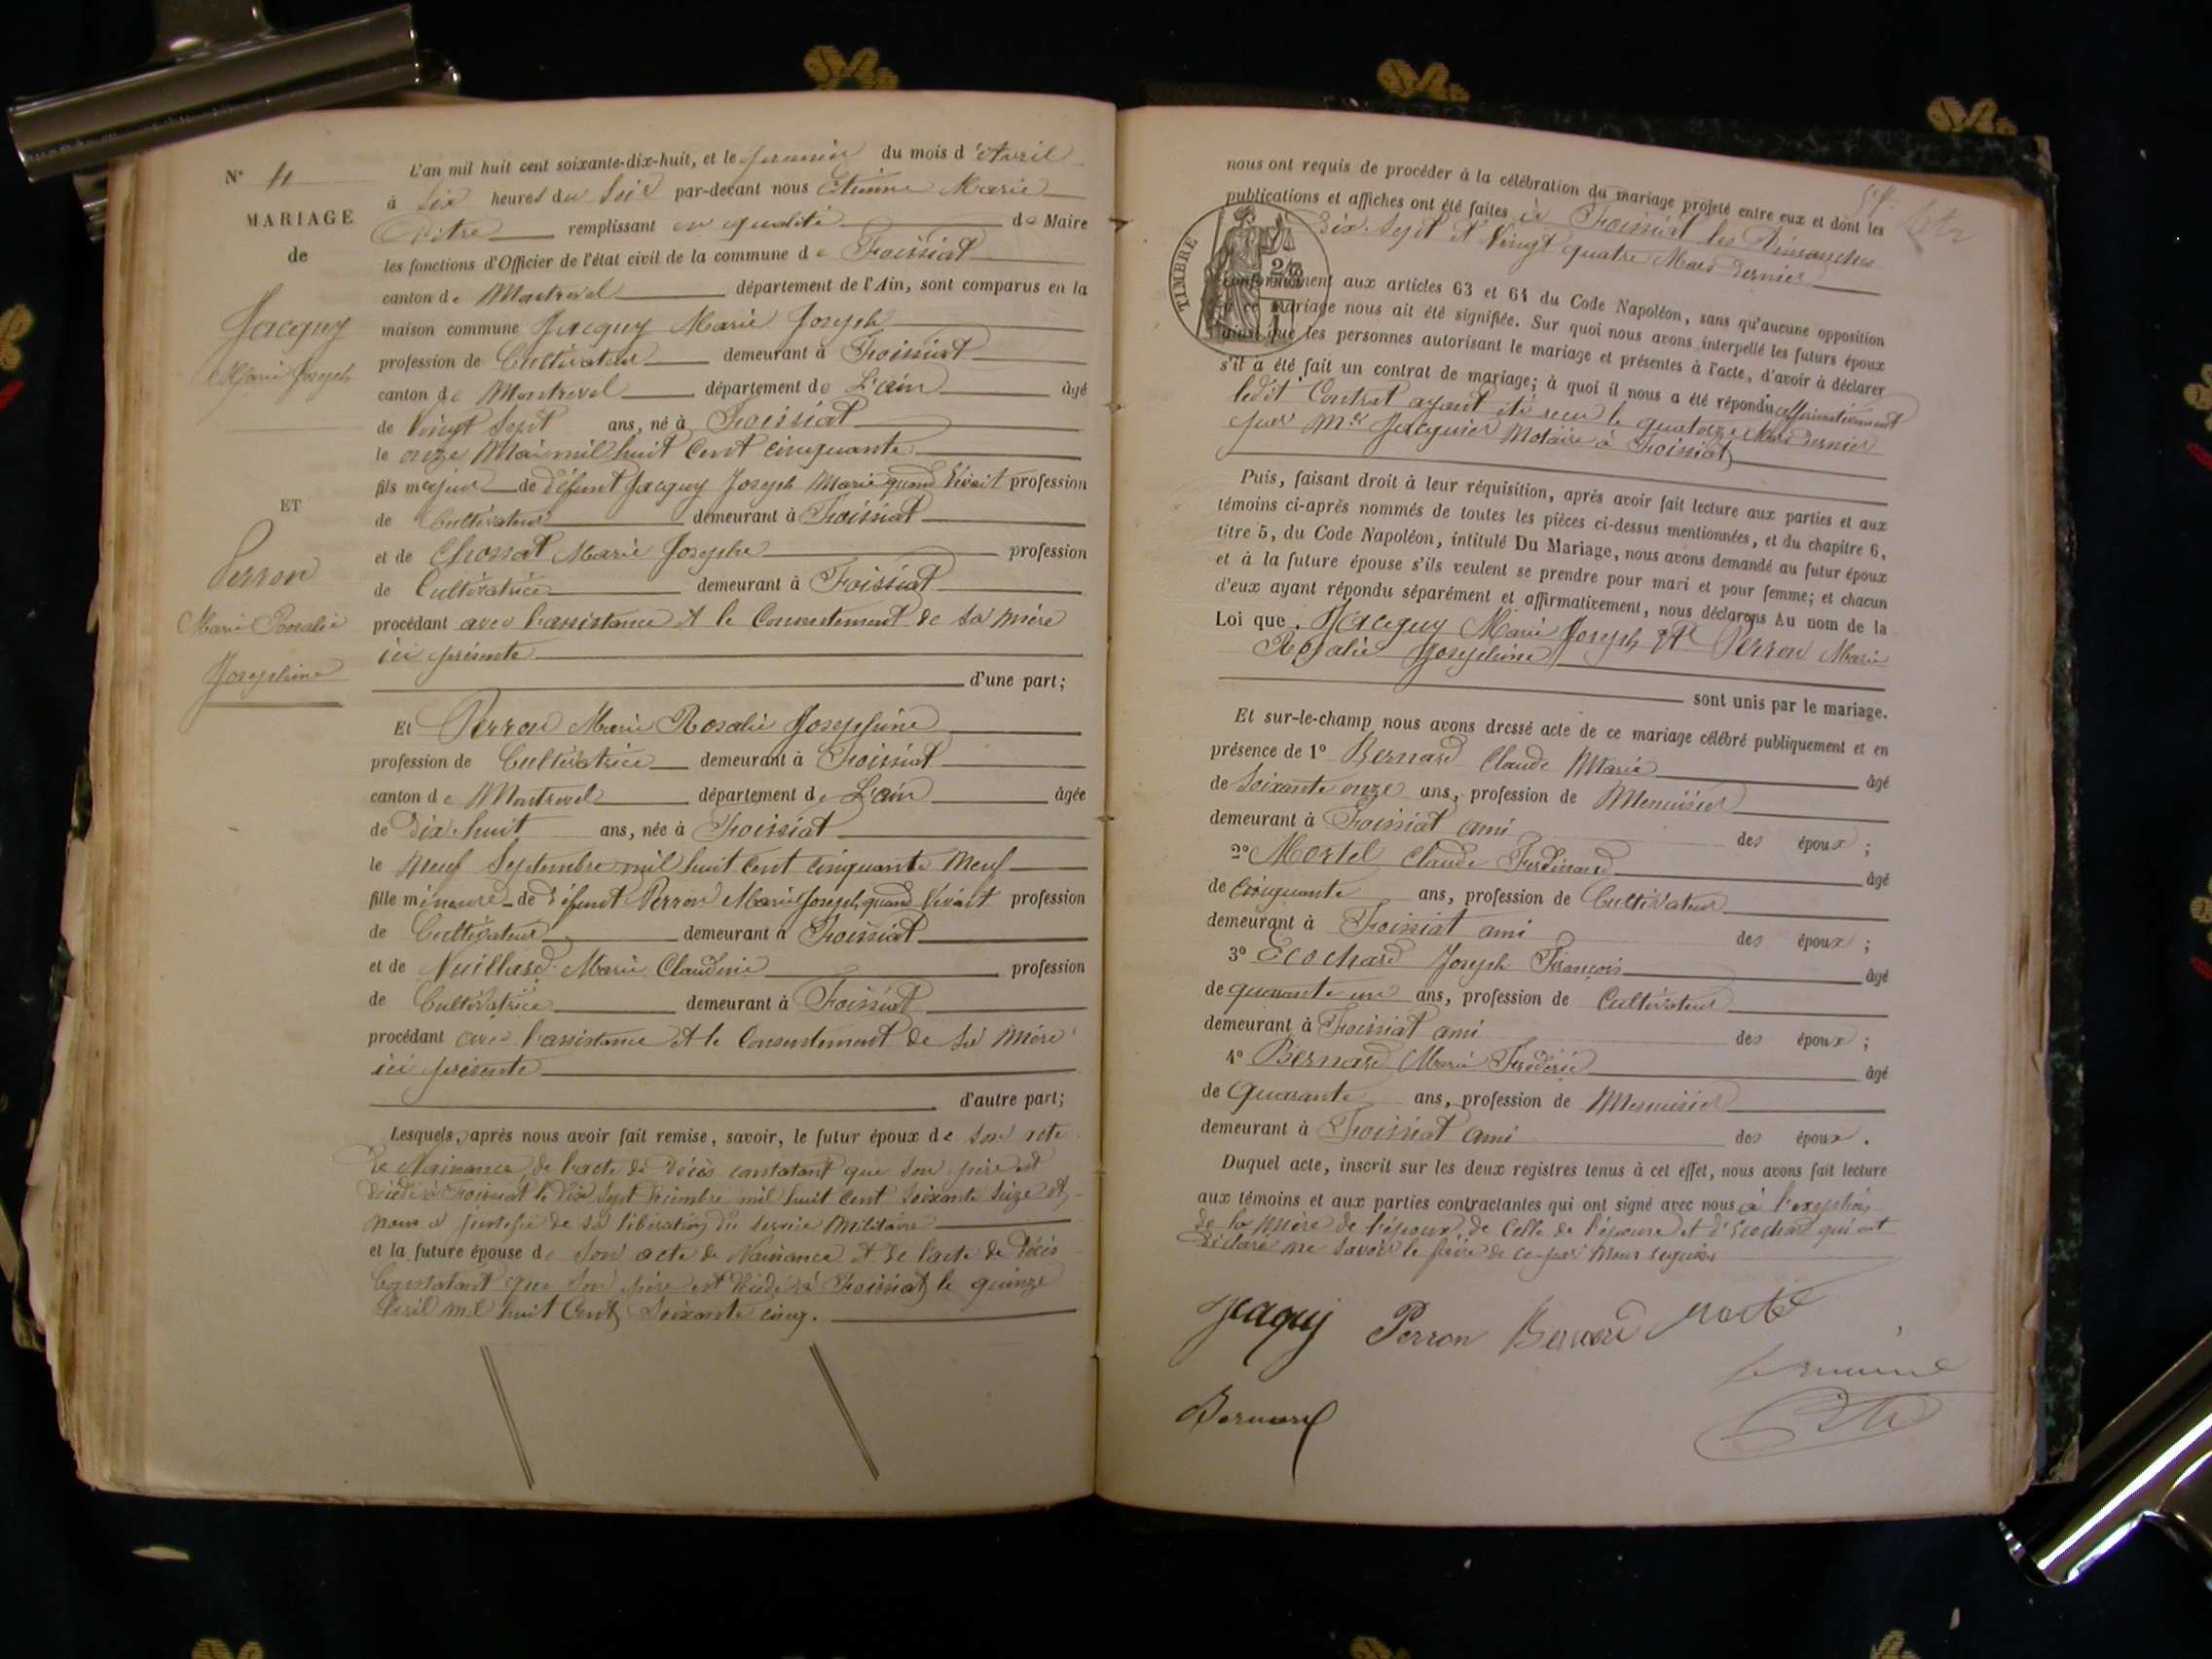 N° 11
MARIAGE
de
Jacquy
Marie Joseph
ET
Perron
Marie Rosalie
Josephine
L'an mil huit cent soixante-dix-huit, et le premier du mois d'Avril
à Six heures du Soir par-devant nous Etienne Marie
remplissant en qualité de Maire
les fonctions d'Officier de l'état civil de la commune de Foissiat
canton de Montrevel département de l'Ain, sont comparus en la
maison commune Jacquy Marie Joseph
profession de Cultivateur demeurant à Foissiat
canton de Montrevel département de L'ain âgé
de Vingt Sept ans, né à Foissiat
le onze Mai mil huit Cent cinquante
fils majeur de défunt Jacquy Joseph Marie quand Vivait profession
de Cultivateur demeurant à Foissiat
et de Chossat Marie Josephe profession
de Cultivatrice demeurant à Foissiat
procédant avec l'assistance et le Consentement de sa mère
ici présente
d'une part;
Et Perron Marie Rosalie Josephine
profession de Cultivatrice demeurant à Foissiat
canton de Montrevel département de L'ain âgée
de Dix huit ans, née à Foissiat
le Neuf Septembre mil huit cent cinquante Neuf
fille mineure de défunt Perron Marie Joseph quand Vivait profession
de Cultivateur demeurant à Foissiat
et de Nuillard Marie Claudine profession
de Cultivatrice demeurant à Foissiat
procédant avec l'assistance et le Consentement de sa mère
ici présente
d'autre part;
Lesquels, après nous avoir fait remise, savoir, le futur époux de son acte
de Naissance, de l'acte de Décès constatant que son père est
décédé à Foissiat le Dix sept Décembre mil huit cent soixante Seize et
nous a justifié de sa libération du service Militaire
et la future épouse de son acte de Naissance et de l'acte de Décès
Constatant que son père est décédé à Foissiat le quinze
Avril mil huit Cent Soixante cinq.
nous ont requis de procéder à la célébration du mariage projeté entre eux et dont les
publications et affiches ont été faites à Foissiat les Dimanches
Dix-Sept et Vingt quatre Mars Dernier
TIMBRE
conformément aux articles 63 et 64 du Code Napoléon, sans qu'aucune opposition
à ce mariage nous ait été signifiée. Sur quoi nous avons interpellé les futurs époux
ainsi que les personnes autorisant le mariage et présentes à l'acte, d'avoir à déclarer
s'il a été fait un contrat de mariage; à quoi il nous a été répondu affirmativement
ledit Contrat ayant été reçu le quatorze Mars Dernier
par Me Jacquier Notaire à Foissiat
Puis, faisant droit à leur réquisition, après avoir fait lecture aux parties et aux
témoins ci-après nommés de toutes les pièces ci-dessus mentionnées, et du chapitre 6,
titre 5, du Code Napoléon, intitulé Du Mariage, nous avons demandé au futur époux
et à la future épouse s'ils veulent se prendre pour mari et pour femme; et chacun
d'eux ayant répondu séparément et affirmativement, nous déclarons Au nom de la
Loi que Jacquy Marie Joseph et Perron Marie
Rosalie Josephine
sont unis par le mariage.
Et sur-le-champ nous avons dressé acte de ce mariage célébré publiquement et en
présence de 1° Bernard Claude Marie âgé
de Soixante onze ans, profession de Menuisier
demeurant à Foissiat ami des époux;
2° Mortel Claude Ferdinand âgé
de Cinquante ans, profession de Cultivateur
demeurant à Foissiat ami des époux;
3° Ecochard Joseph François âgé
de quarante un ans, profession de Cultivateur
demeurant à Foissiat ami des époux;
4° Bernard Marie Frédéric âgé
de Quarante ans, profession de Menuisier
demeurant à Foissiat ami des époux.
Duquel acte, inscrit sur les deux registres tenus à cet effet, nous avons fait lecture
aux témoins et aux parties contractantes qui ont signé avec nous à l'exception
de la Mère de l'époux, de Celle de l'épouse et d'Ecochard qui ont
déclaré ne savoir le faire de ce par nous requis
Jaquy Perron Bernard Mortel
le maire
Bernard